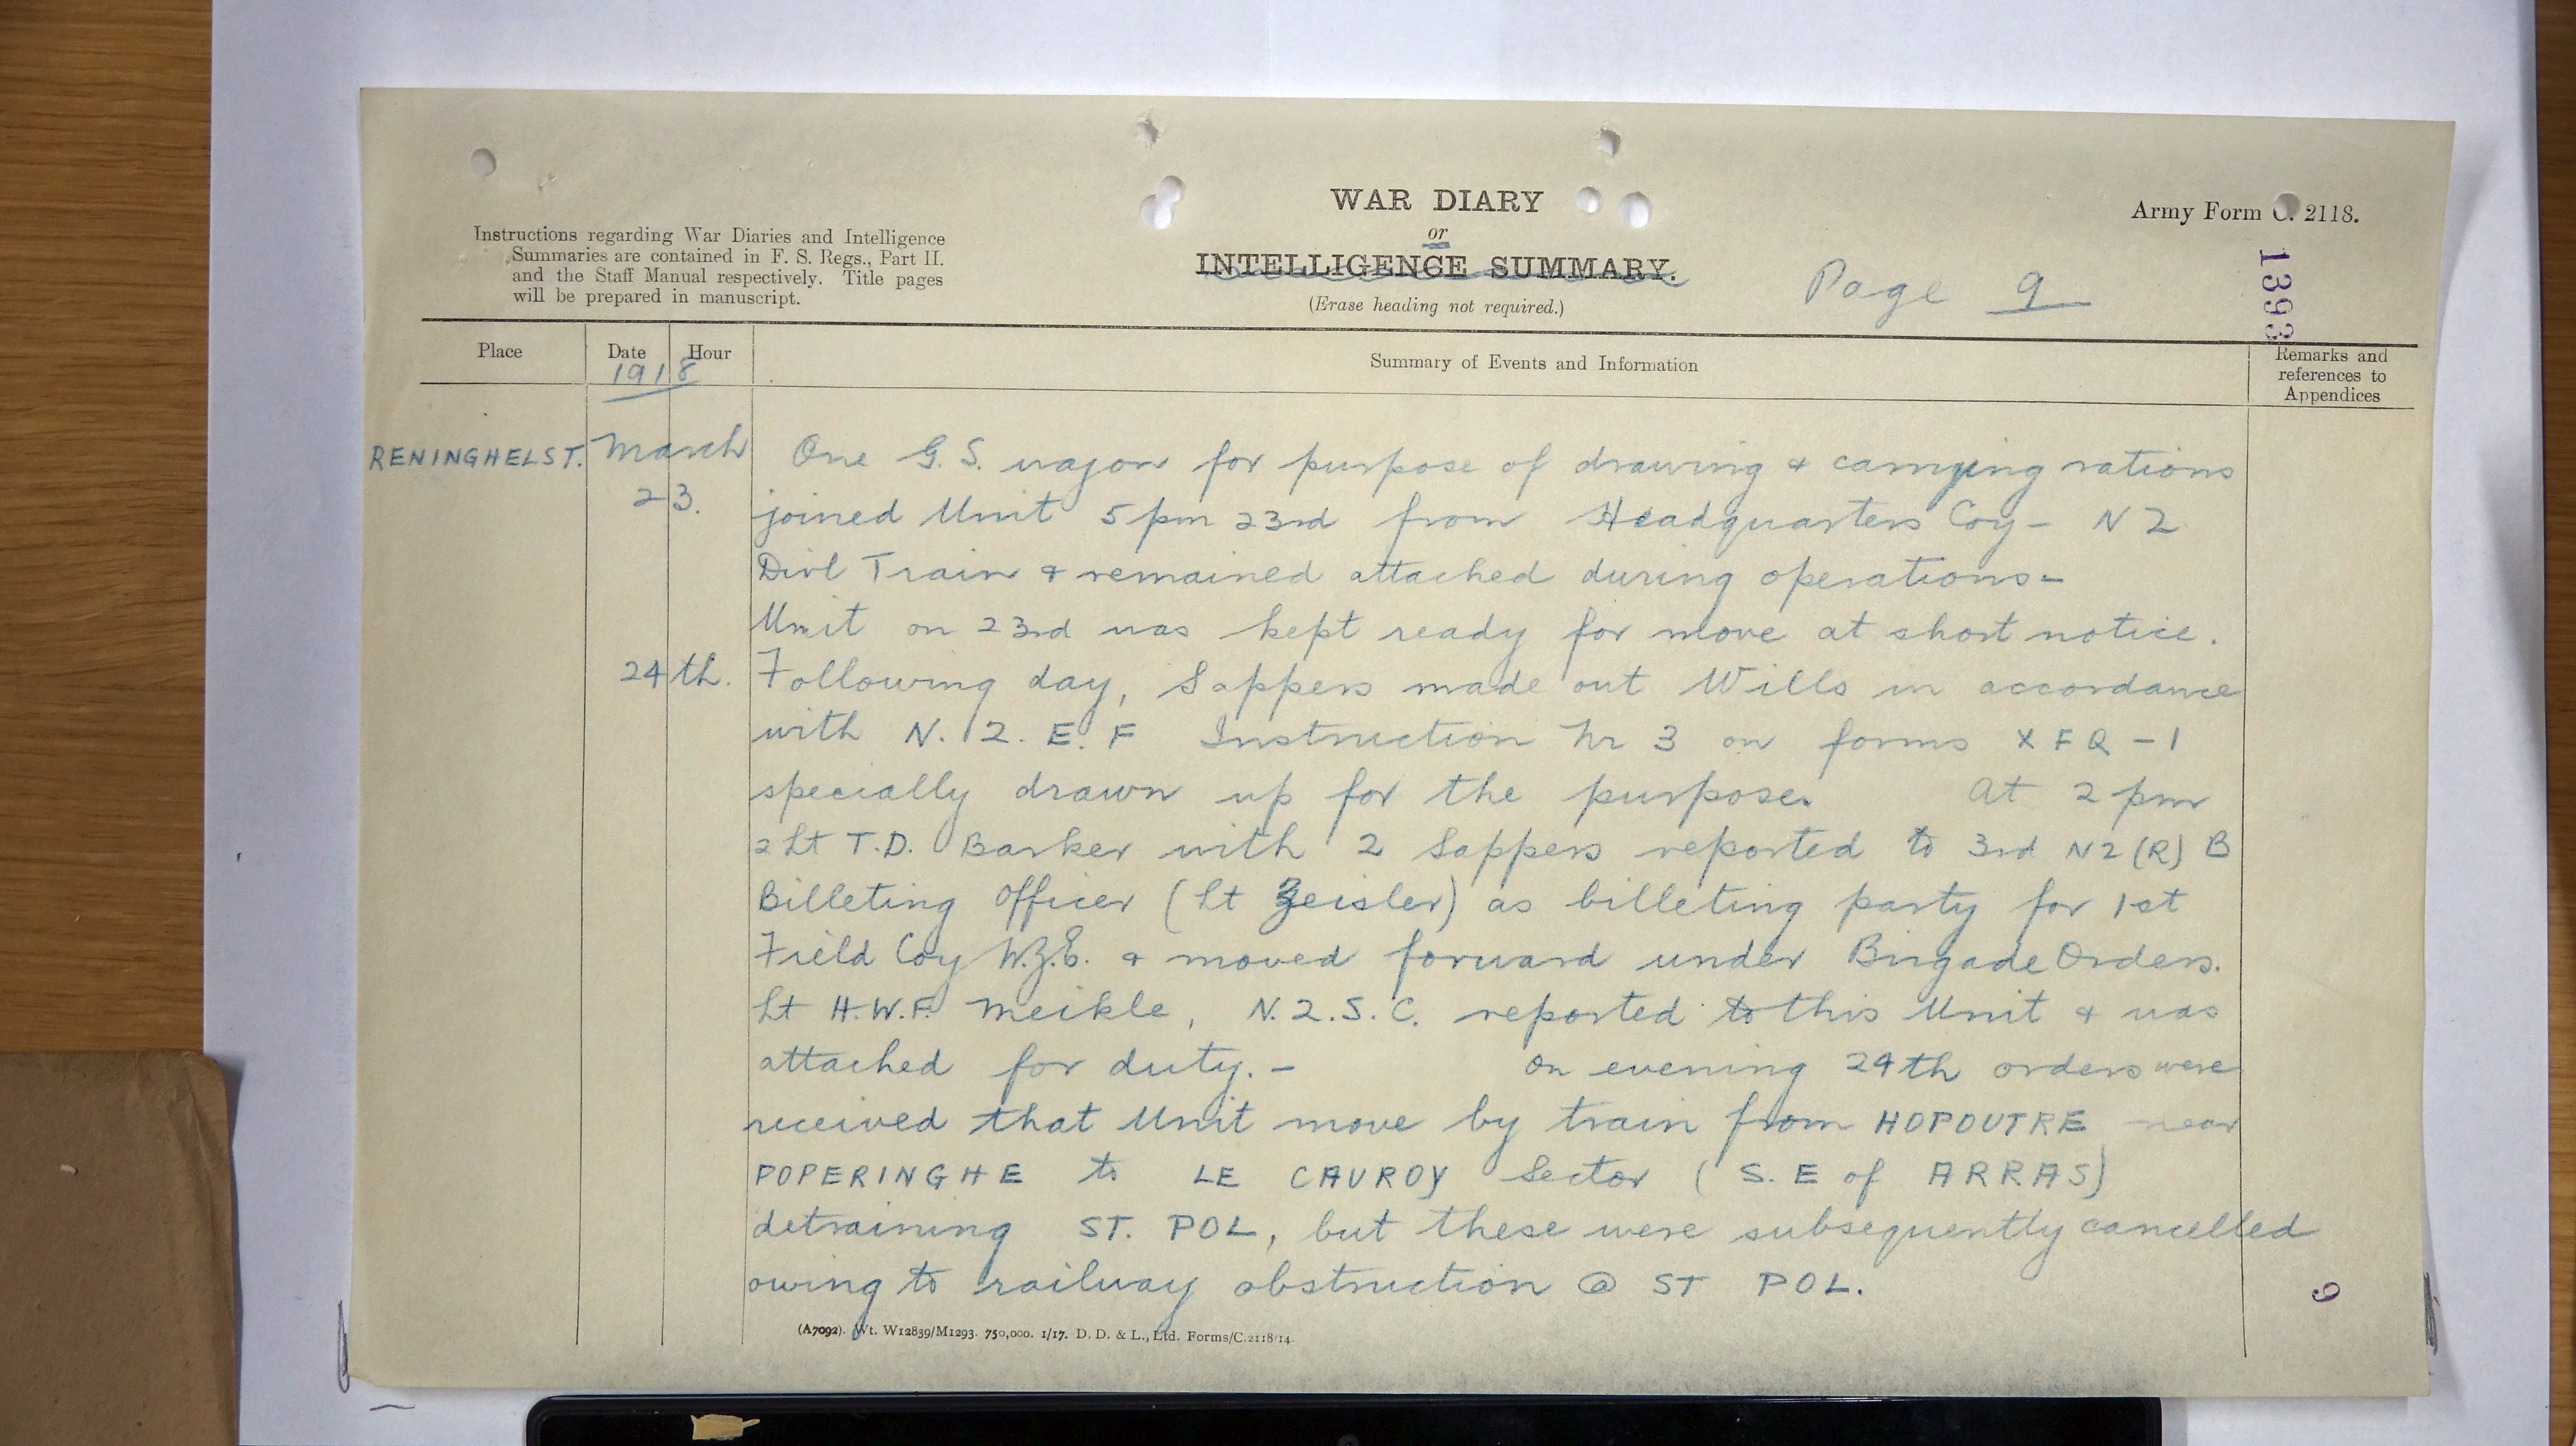 WAR DIARY
or
INTELLIGENCE SUMMARY.
(Erase heading not required.)
Army Form C. 2118.
Instructions regarding War Diaries and Intelligence
Summaries are contained in F. S. Regs., Part II.
and the Staff Manual respectively. Title pages
will be prepared in manuscript.
Page 9
1393
Place
Date
Hour
1918
Summary of Events and Information
Remarks and
references to
Appendices
RENINGHELST. March One G.S. wagon for purpose of drawing & carrying rations
23. joined Unit 5 pm 23rd from Headquarters Coy - NZ
Divl Train & remained attached during operations -
Unit on 23rd was kept ready for move at short notice.
24th. Following day, Sappers made out Wills in accordance
with N.Z.E.F Instruction Nr 3 on forms XFQ-1
specially drawn up for the purpose. At 2 pm
2 Lt T.D. Barker with 2 Sappers reported to 3rd NZ(R)B
Billeting Officer (Lt Zeisler) as billeting party for 1st
Field Coy N.Z.E. & moved forward under Brigade Orders.
Lt H.W.F. Meikle, N.Z.S.C. reported to this Unit & was
attached for duty. - On evening 24th orders were
received that Unit move by train from HOPOUTRE near
POPERINGHE to LE CAUROY Sector (S.E of ARRAS)
detraining ST. POL, but these were subsequently cancelled
owing to railway obstruction @ ST POL.
9
(A7092). Wt. W12839/M1293. 750,000. 1/17. D. D. & L., Ltd. Forms/C.2118/14.